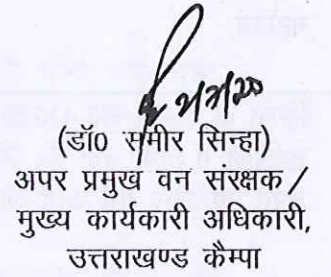 2/7/20
(डॉ0 समीर सिन्हा)
अपर प्रमुख वन संरक्षक /
मुख्य कार्यकारी अधिकारी,
उत्तराखण्ड कैम्पा